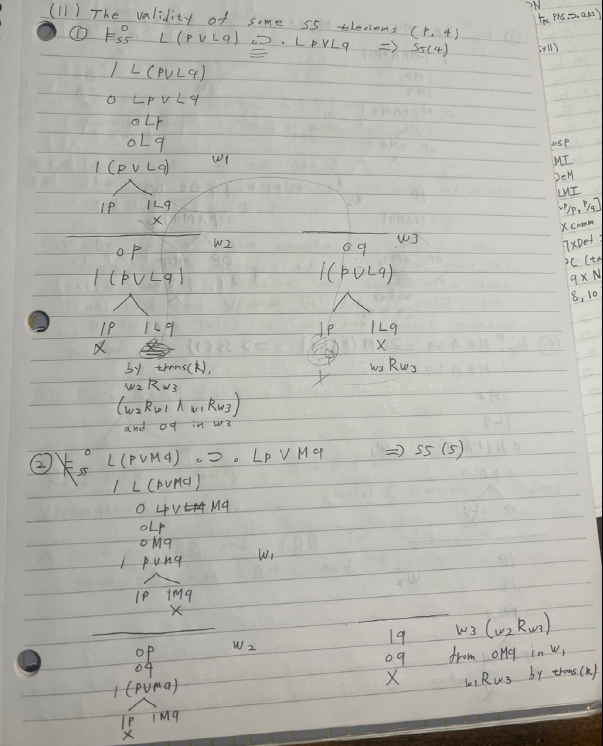 (11) The validity of some S5 theorems (P. 4)
① ⊨⁰S5 L(pVLq) .⊃. LpVLq => S5(4)
1 L(pVLq)
0 LpVLq
0Lp
0Lq
1(pVLq) W1
1p 1Lq
X
0p W2
1(pVLq)
1p 1Lq
X
by trans(R),
W2RW3
(W2RW1 ∧ W1RW3)
and 0q in W3
0q W3
1(pVLq)
1p 1Lq
X
X
W3RW3
② ⊨⁰S5 L(pVMq) .⊃. LpVMq => S5(5)
1 L(pVMq)
0 LpVMq
0Lp
0Mq
1 pVMq W1
1p 1Mq
X
0p W2
0q
1(pVMq)
1p 1Mq
X
1q W3 (W2RW3)
0q from 0Mq in W1
X W1RW3 by trans(R)
MI
DeM
LMI
X comm
q X N
8, 10